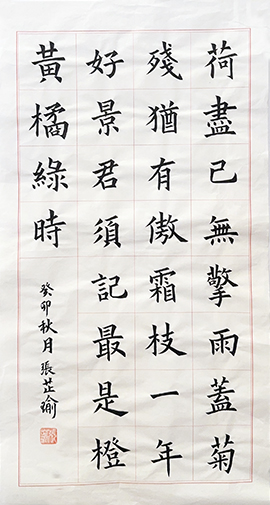 荷盡已無擎雨蓋菊
殘猶有傲霜枝一年
好景君須記最是橙
黃橘綠時
癸卯秋月張芷瑜